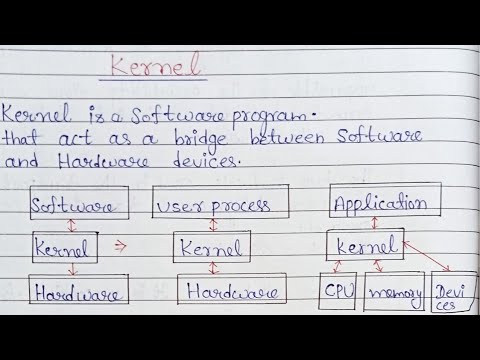 Kernel
Kernel is a Software program.
that act as a bridge between Software
and Hardware devices.
Software user process Application
Kernel ⇒ Kernel Kernel
Hardware Hardware CPU memory Devi
ces